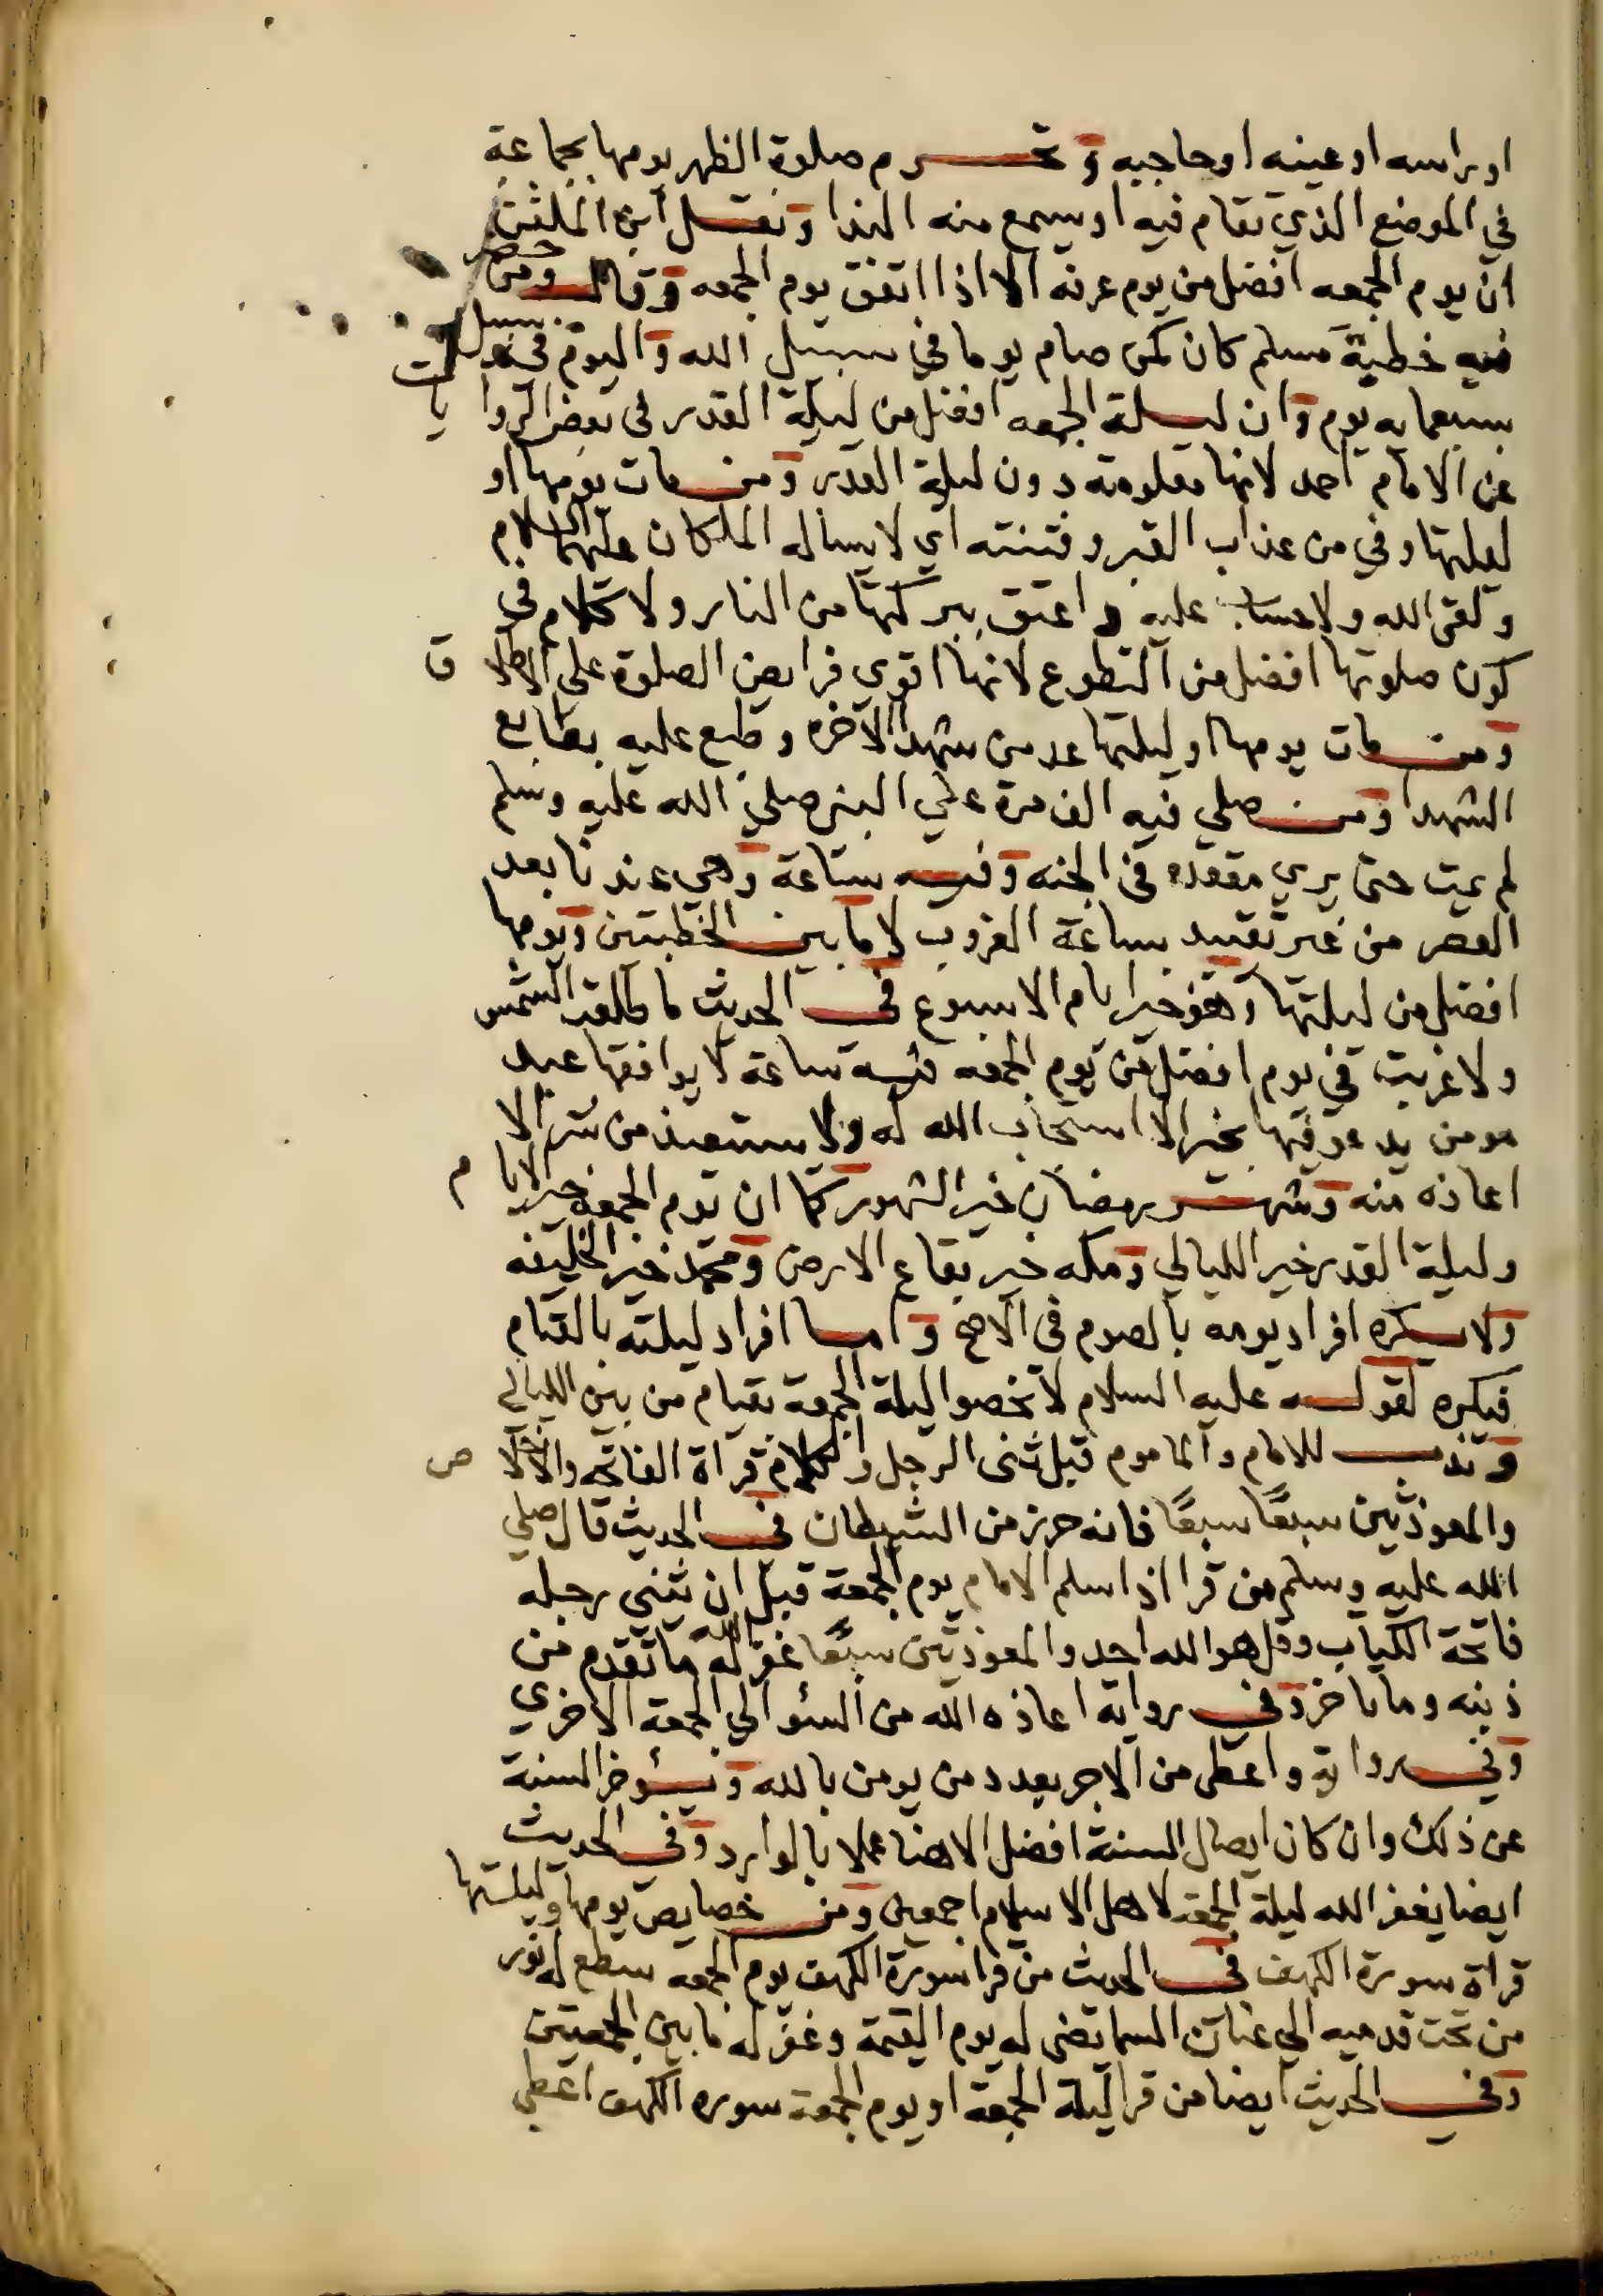 او براسه او عينه او حاجبه وتحرم صلوة الظهر يومها بجماعة
في الموضع الذي تقام فيه او يسمع منه الندا ونقل ابن الملقن
ان يوم الجمعه افضل من يوم عرفة الا اذا اتفق يوم الجمعه وقال ومن حضر
فيه خطبة مسلم كان كمن صام يوما في سبيل الله واليوم في سبيل الله
بسبعمايه يوم وان ليلة الجمعه افضل من ليلة القدر في بعض الروايات
عن الامام احمد لانها معلومة دون ليلة القدر ومن مات يومها او
ليلتها وقي من عذاب القبر وفتنته اي لا يساله الملكان عليهما السلام
ولقي الله ولا حساب عليه واعتق ببركتها من النار ولا كلام في
كون صلوتها افضل من التطوع لانها اقوي فرايض الصلوة علي الاطلاق
ومن مات يومها او ليلتها عد من شهدا الاخره وطبع عليه بطابع
الشهدا ومن صلي فيه الف مرة علي النبي صلي الله عليه وسلم
لم يمت حتي يري مقعده في الجنه وفيه ساعة وهي عندنا بعد
العصر من غير تقييد بساعة الغروب لا ما بين الخطبتين ويومها
افضل من ليلتها وهو خير ايام الاسبوع في الحديث ما طلعت الشمس
ولا غربت في يوم افضل من يوم الجمعه فيه ساعة لا يوافقها عبد
مومن يدعو فيها بخير الا استجاب الله له ولا يستعيذ من شر الا
اعاذه منه وشهر رمضان خير الشهور كما ان يوم الجمعه خير الايام
وليلة القدر خير الليالي ومكه خير بقاع الارض ومحمد خير الخليقه
ولا يكره افراد يومه بالصوم في الاصح واما افراد ليلته بالقيام
فيكره لقوله عليه السلام لا تخصوا ليلة الجمعة بقيام من بين الليالي
وندب للامام والماموم قبل ثني الرجل والكلام قراة الفاتحه والاخلاص
والمعوذتين سبعًا سبعًا فانه حرز من الشيطان في الحديث قال صلي
الله عليه وسلم من قرا اذا سلم الامام يوم الجمعة قبل ان يثني رجله
فاتحة الكتاب وقل هو الله احد والمعوذتين سبعًا غفر الله له ما تقدم من
ذنبه وما تاخر وفي رواية اعاذه الله من السؤ الي الجمعة الاخري
وفي رواية واعطي من الاجر بعدد من يومن بالله ويؤخر السنة
عن ذلك وان كان ايصال السنة افضل الا هنا عملا بالوارد وفي الحديث
ايضا يغفر الله ليلة الجمعة لاهل الاسلام اجمعين ومن خصايص يومها وليلتها
قراة سورة الكهف في الحديث من قرا سورة الكهف يوم الجمعه سطع له نور
من تحت قدميه الي عنان السما يضي له يوم القيمة وغفر له ما بين الجمعتين
وفي الحديث ايضا من قرا ليلة الجمعة او يوم الجمعة سوره الكهف اعطي